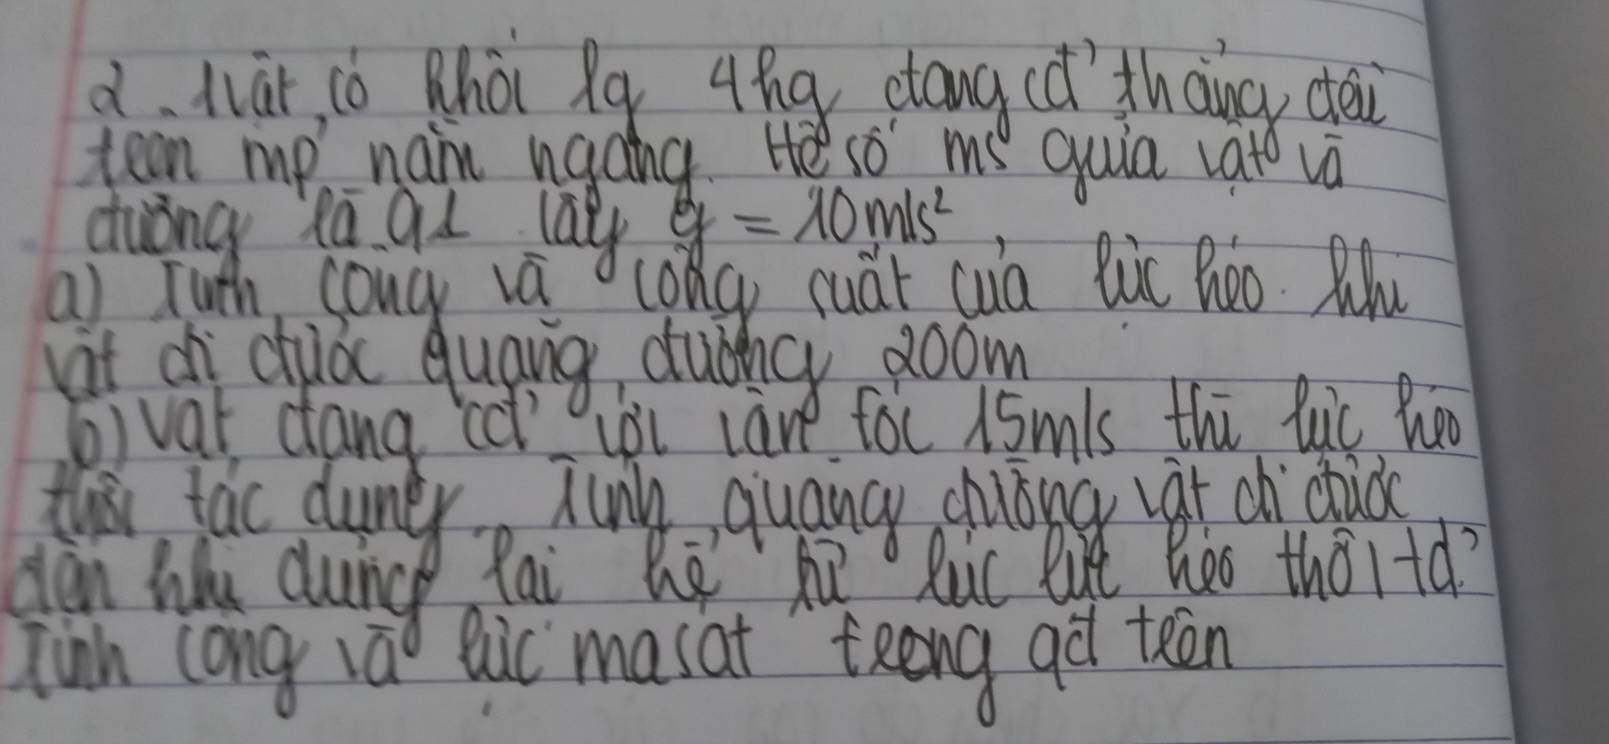 2. Vật có khối lg 4kg đang cđ thẳng đều
trên mp nằm ngang. Hệ số ms giữa vật và
đường là 0,1 lấy g = 10m/s²
a) Tính công và công suất của lực kéo. Khi
vật đi được quãng đường 200m
b) Vật đang cđ với vận tốc 15m/s thì lực kéo
thôi tác dụng. Tính quãng đường vật đi được
đến khi dừng lại kể từ lúc lực kéo thôi td?
Tính công và lực masat trong qđ trên